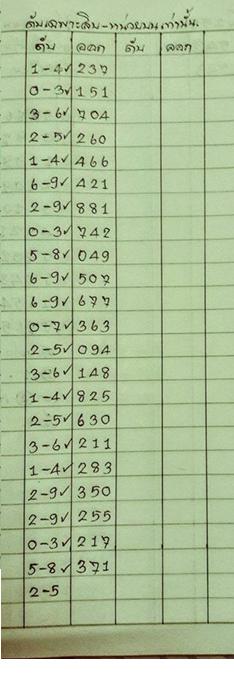 ดับเฉพาะสิบ-หน่วยบนเท่านั้น.
ดับ ออก ดับ ออก
1-4✓ 237
0-3✓ 151
3-6✓ 704
2-5✓ 260
1-4✓ 466
6-9✓ 421
2-9✓ 881
0-3✓ 742
5-8✓ 049
6-9✓ 507
6-9✓ 677
0-7✓ 363
2-5✓ 094
3-6✓ 148
1-4✓ 825
2-5✓ 630
3-6✓ 211
1-4✓ 283
2-9✓ 350
2-9✓ 255
0-3✓ 217
5-8✓ 371
2-5